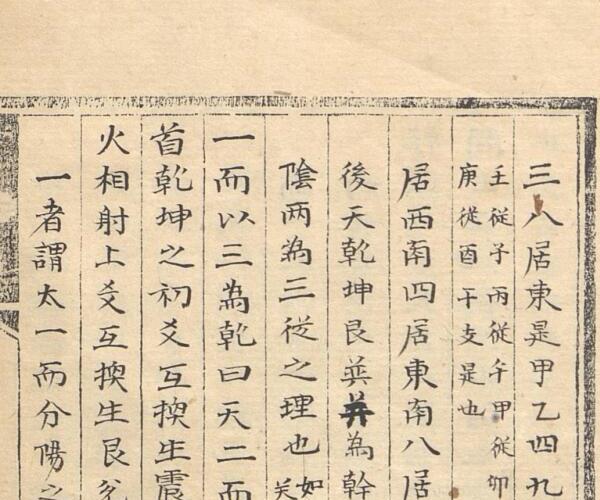 三八居東是甲乙四九
壬從子丙從午甲從卯
庚從酉干支是也
居西南四居東南八居
後天乾坤艮巽
為幹
陰兩為三從之理也如
一而以三為乾曰天二而
首乾坤之初爻互換生震
火相射上爻互換生艮兌
一者謂太一而分陽之